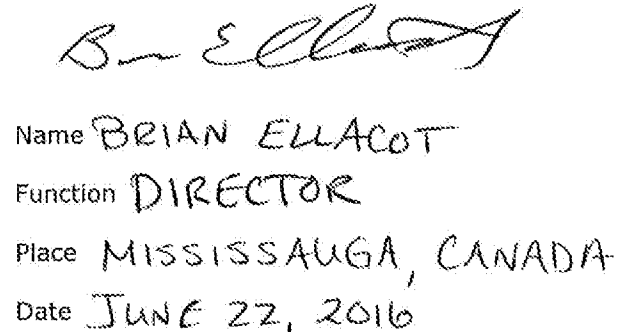 Brian Ellacott
Name BRIAN ELLACOT
Function DIRECTOR
Place MISSISSAUGA, CANADA
Date JUNE 22, 2016